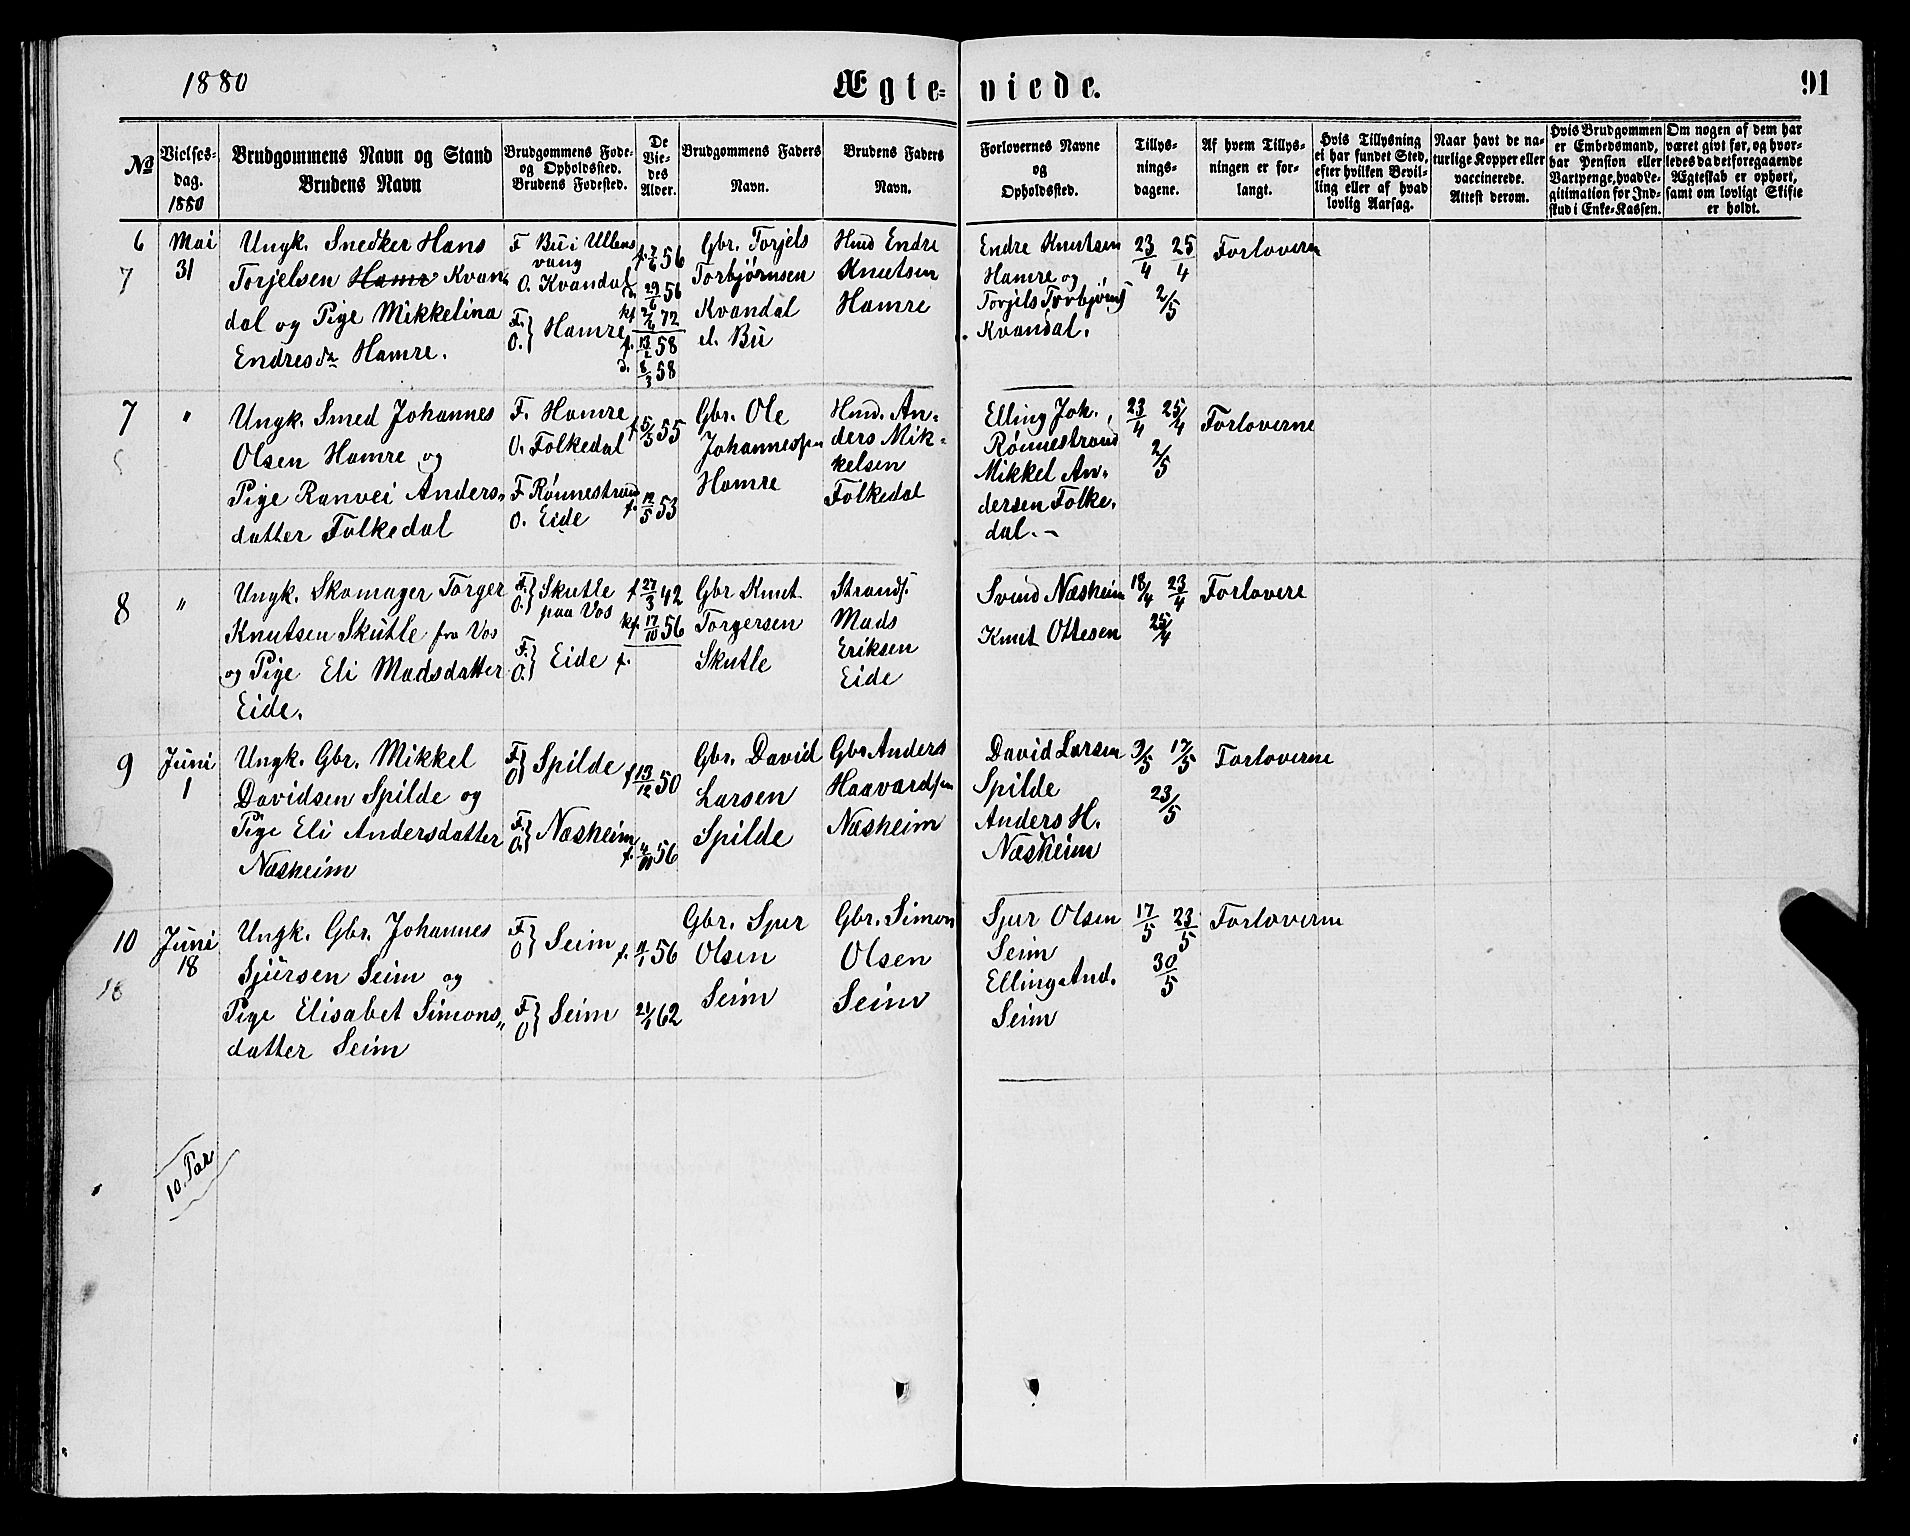 1880
Ægte-
viede.
91
No
Vielses-
dag.
1880
Brudgommens Navn og Stand
Brudens Navn
Brudgommens Føde-
og Opholdssted.
Brudens Fødested.
De
Vie-
des
Alder.
Brudgommens Faders
Navn.
Brudens Faders
Navn.
Forlovernes Navne
og
Opholdssted.
Tillys-
nings-
dagene.
Af hvem Tillys-
ningen er for-
langt.
Hvis Tillysning
ei har fundet Sted,
efter hvilken Bevil-
ling eller af hvad
lovlig Aarsag.
Naar havt de na-
turlige Kopper eller
vaccinerede.
Attest derom.
Hvis Brudgommen
er Embedsmand,
har Pension eller
Vartpenge, hvad Le-
gitimation for Ind-
skud i Enke-Kassen.
Om nogen af dem har
været givt før, og hvor-
ledes da det foregaaende
Ægteskab er ophørt,
samt om lovligt Skifte
er holdt.
6
7
Mai
31
Ungk. Snedker Hans
Torjelsen Hamre Kvan-
dal og Pige Mikkelina
Endresdr Hamre.
F. Bu i Ullens
vang
O. Kvandal
F.
O. } Hamre
f. 7/6 56
d. 29/6 56
kf 2/6 72
f. 13/2 58
d. 8/3 58
Gbr. Torjels
Torbjørnsen
Kvandal
el. Bu
Hmd Endre
Knutsen
Hamre
Endre Knutsen
Hamre og
Torjels Torbjørns
Kvandal.
23/4 25/4
2/5
Forloverne
7
"
Ungk. Smed Johannes
Olsen Hamre og
Pige Ranvei Anders-
datter Folkedal
F. Hamre
O. Folkedal
F Rønnestrand
O. Eide
f 5/3 55
f. 12/5 53
Gbr. Ole
Johannessen
Hamre
Hmd. An-
ders Mik-
kelsen
Folkedal
Elling Joh.
Rønnestrand
Mikkel An-
dersen Folke-
dal. -
23/4 25/4
2/5
Forloverne
8
"
Ungk. Skomager Torger
Knutsen Skutle fra Vos
og Pige Eli Madsdatter
Eide.
F.
O. } Skutle
paa Vos
F.
O. } Eide
f 27/3 42
kf 17/10 56
f.
Gbr Knut
Torgersen
Skutle
Strands.
Mads
Eriksen
Eide
Svend Næsheim
Knut Ottesen
18/4 23/4
25/4
Forlovere
9
Juni
1
Ungk. Gbr. Mikkel
Davidsen Spilde og
Pige Eli Andersdatter
Næsheim
F
O } Spilde
F.
O. } Næsheim
f 13/12 50
f. 4/10 56
Gbr. David
Larsen
Spilde
Gbr Anders
Haavardsen
Næsheim
David Larsen
Spilde
Anders H.
Næsheim
9/5 17/5
23/5
Forloverne
10
18
Juni
18
Ungk. Gbr. Johannes
Sjursen Seim og
Pige Elisabet Simons-
datter Seim
F
O } Seim
F
O } Seim
f. 11/1 56
21/1 62
Gbr. Sjur
Olsen
Seim
Gbr. Simon
Olsen
Seim
Sjur Olsen
Seim
Elling And.
Seim
17/5 23/5
30/5
Forloverne
10. Par